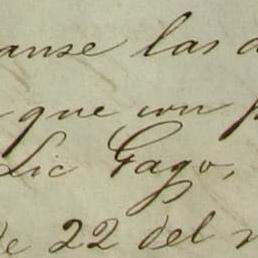 anse las d
que con p
Lic Gago,
de 22 del